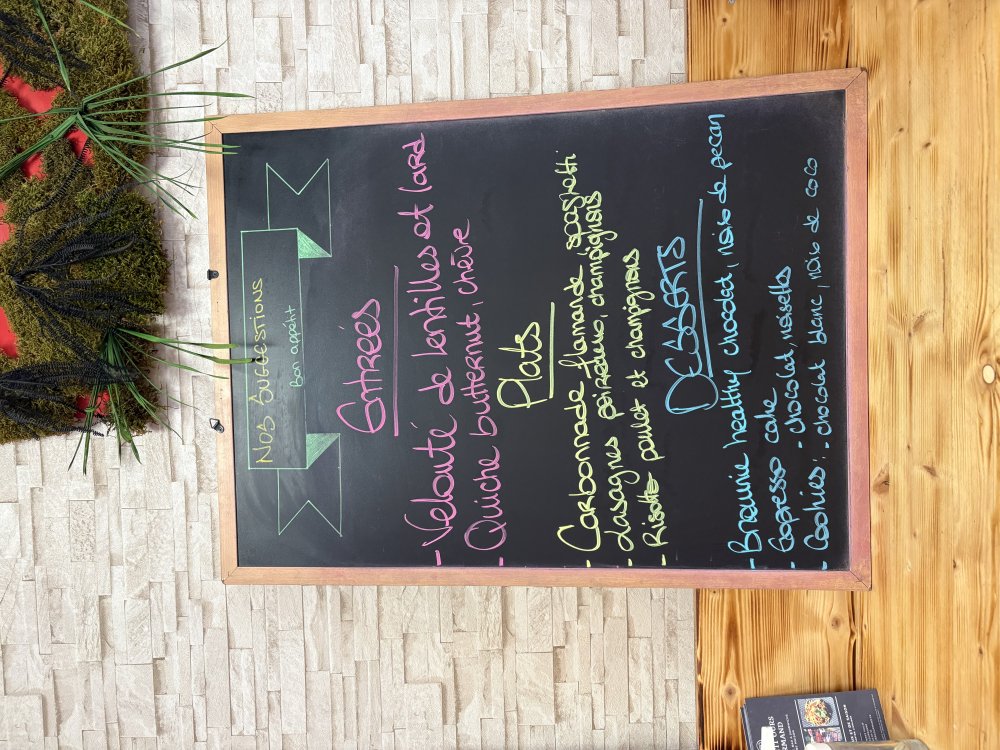 NOS SUGGESTIONS
Bon appétit
Entrées
- Velouté de lentilles et lard
- Quiche butternut, chèvre
Plats
- Carbonnade flamande, spaghetti
- Lasagnes poireaux, champignons
- Risotto poulet et champignons
DESSERTS
- Brownie healthy chocolat, noix de pecan
- Espresso cake
- Cookies : - chocolat, noisettes
- chocolat blanc, noix de coco